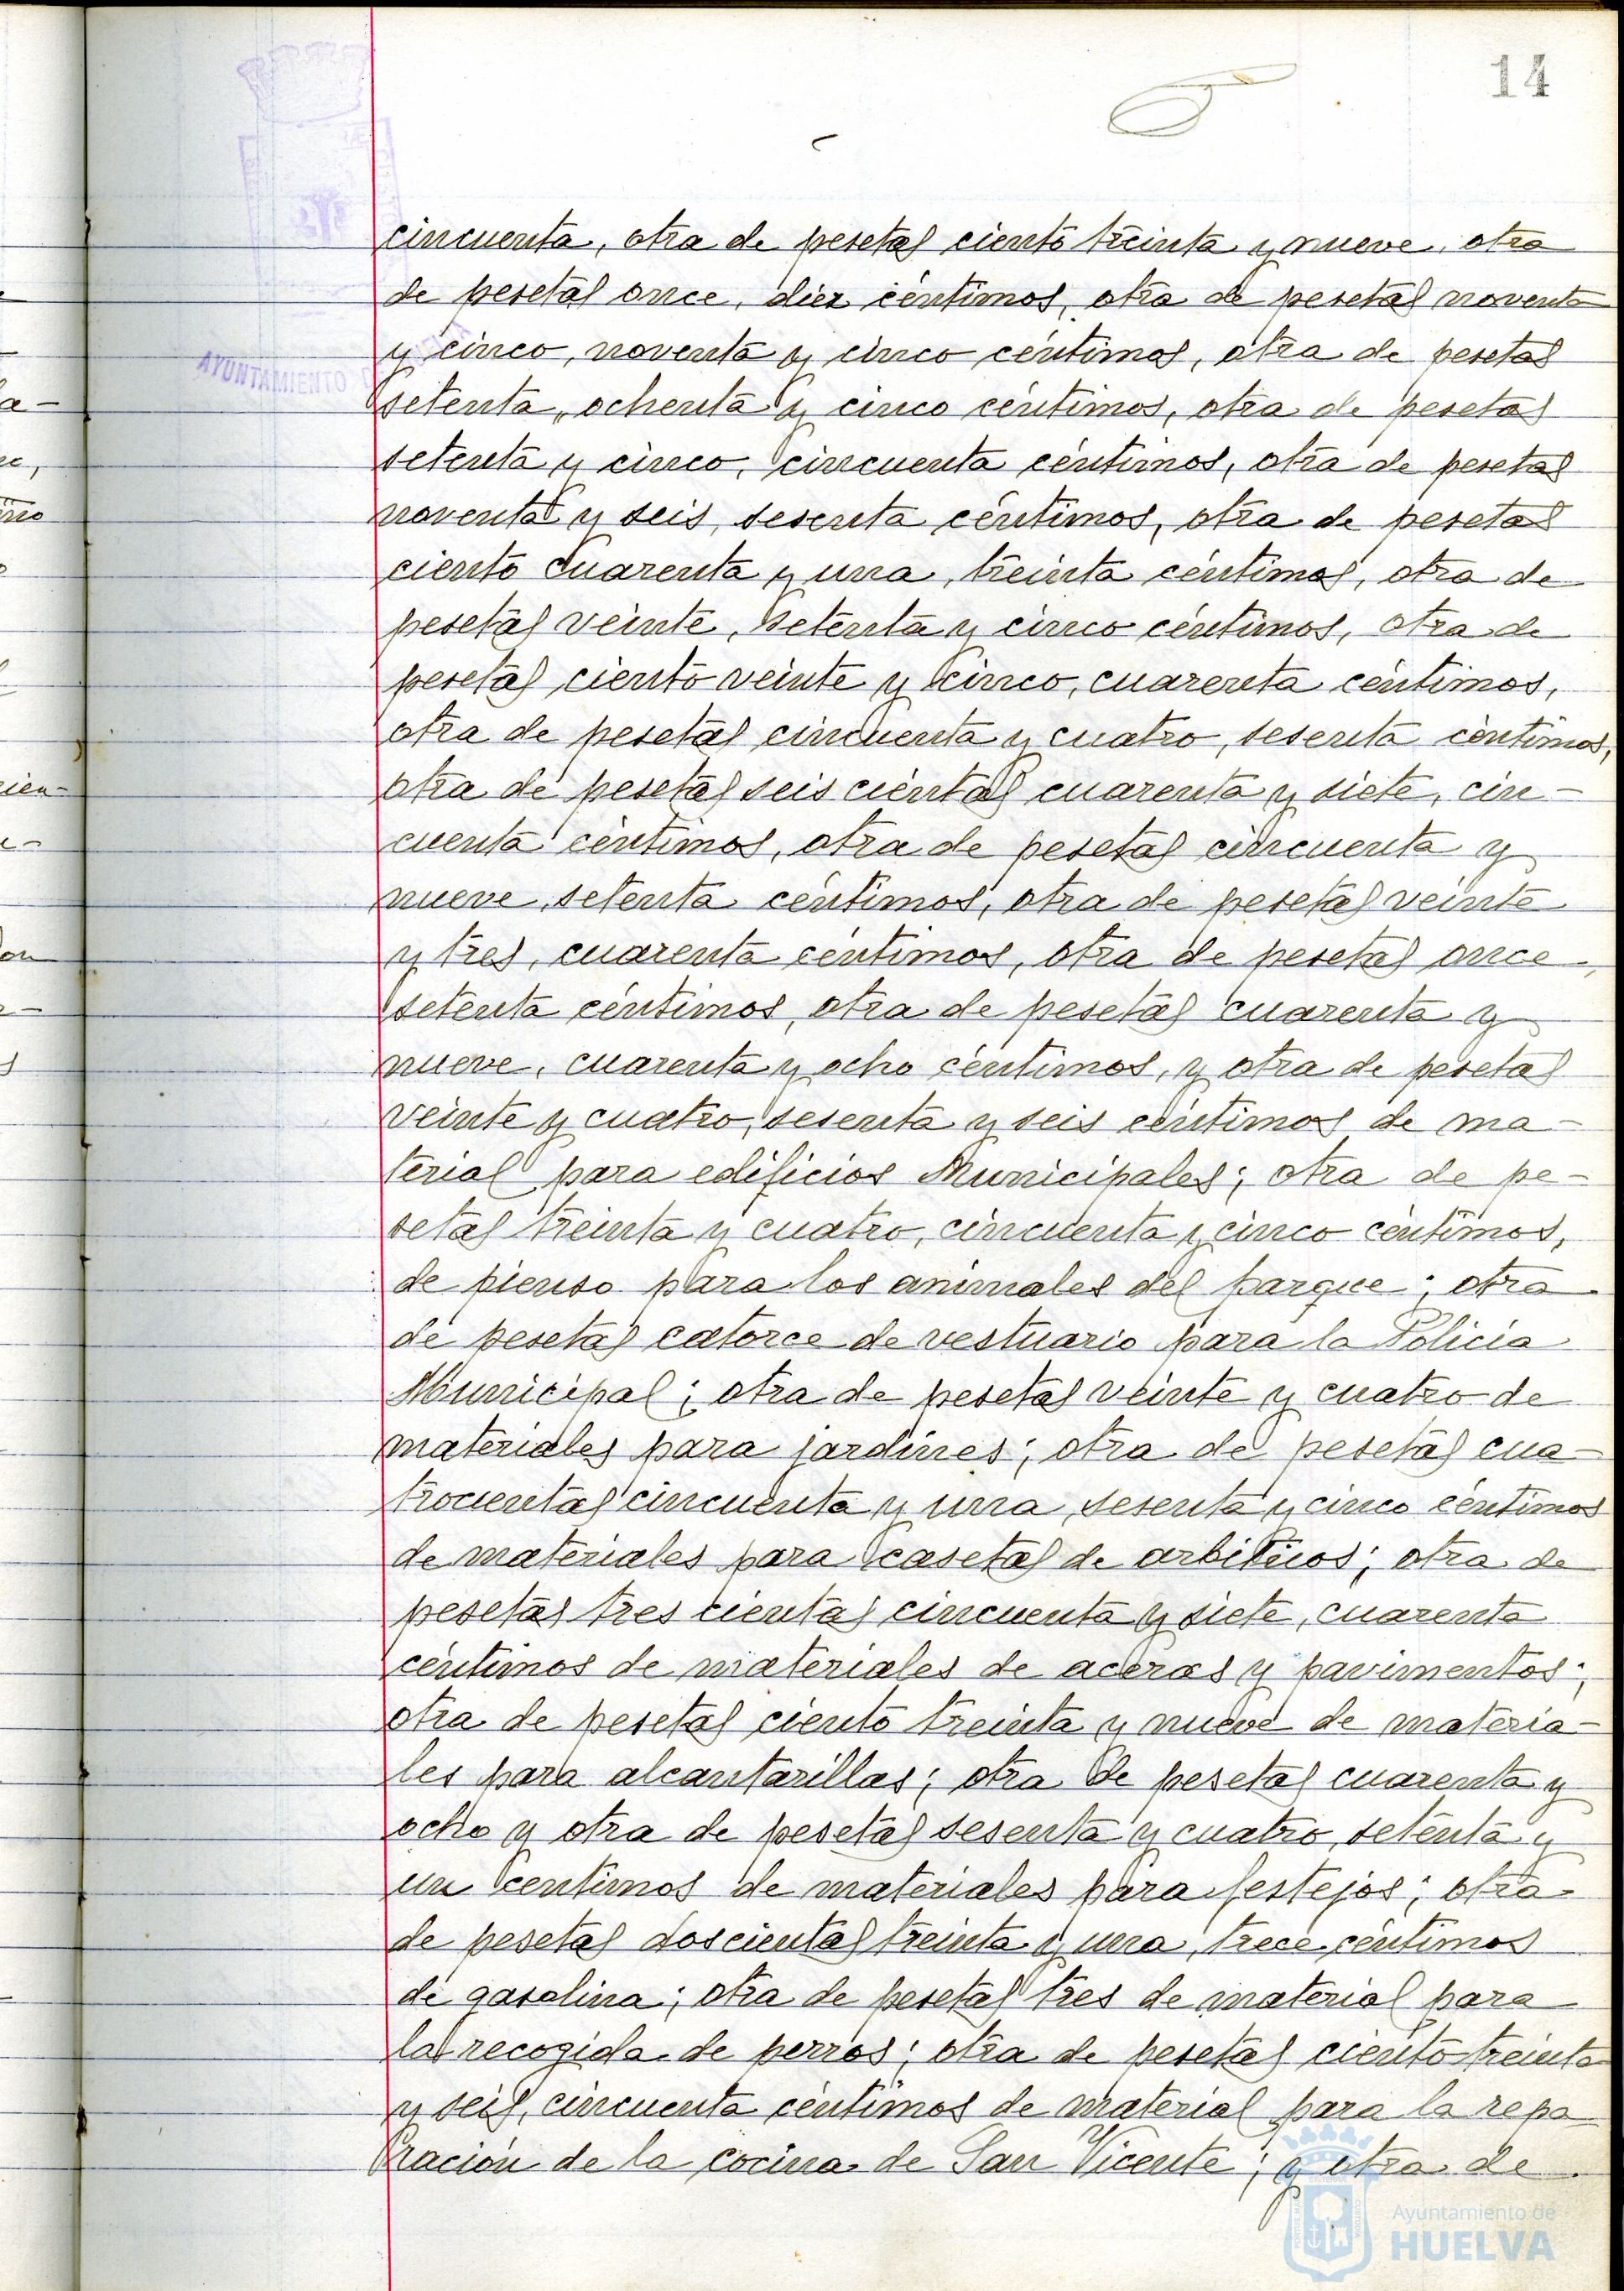 14
cincuenta, otra de pesetas ciento treinta y nueve, otra
de pesetas once, diez céntimos, otra de pesetas noventa
y cinco, noventa y cinco céntimos, otra de pesetas
AYUNTAMIENTO
setenta, ochenta y cinco céntimos, otra de pesetas
setenta y cinco, cincuenta céntimos, otra de pesetas
noventa y seis, sesenta céntimos, otra de pesetas
ciento cuarenta y una, treinta céntimos, otra de
pesetas veinte, setenta y cinco céntimos, otra de
pesetas ciento veinte y cinco, cuarenta céntimos,
otra de pesetas cincuenta y cuatro, sesenta céntimos,
otra de pesetas seiscientas cuarenta y siete, cin-
cuenta céntimos, otra de pesetas cincuenta y
nueve, setenta céntimos, otra de pesetas veinte
y tres, cuarenta céntimos, otra de pesetas once,
setenta céntimos, otra de pesetas cuarenta y
nueve, cuarenta y ocho céntimos, y otra de pesetas
veinte y cuatro, sesenta y seis céntimos de ma-
terial para edificios Municipales; otra de pe-
setas treinta y cuatro, cincuenta y cinco céntimos,
de pienso para los animales del parque; otra
de pesetas catorce de vestuario para la Policia
Municipal; otra de pesetas veinte y cuatro de
materiales para jardines; otra de pesetas cua-
trocientas cincuenta y una, sesenta y cinco céntimos
de materiales para casetas de arbitrios; otra de
pesetas trescientas cincuenta y siete, cuarenta
céntimos de materiales de aceras y pavimentos;
otra de pesetas ciento treinta y nueve de materia-
les para alcantarillas; otra de pesetas cuarenta y
ocho y otra de pesetas sesenta y cuatro, setenta y
un centimos de materiales para festejos; otra
de pesetas doscientas treinta y una, trece céntimos
de gasolina; otra de pesetas tres de material para
la recogida de perros; otra de pesetas ciento treinta
y seis, cincuenta céntimos de material para la repa
ración de la cocina de San Vicente; y otra de
Ayuntamiento de
HUELVA